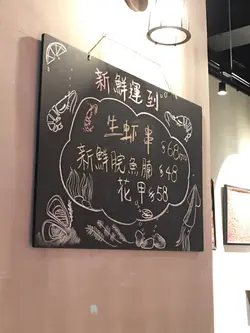 新鮮運到
生虾串 $68
新鮮脘魚腩 $48
花甲 $58